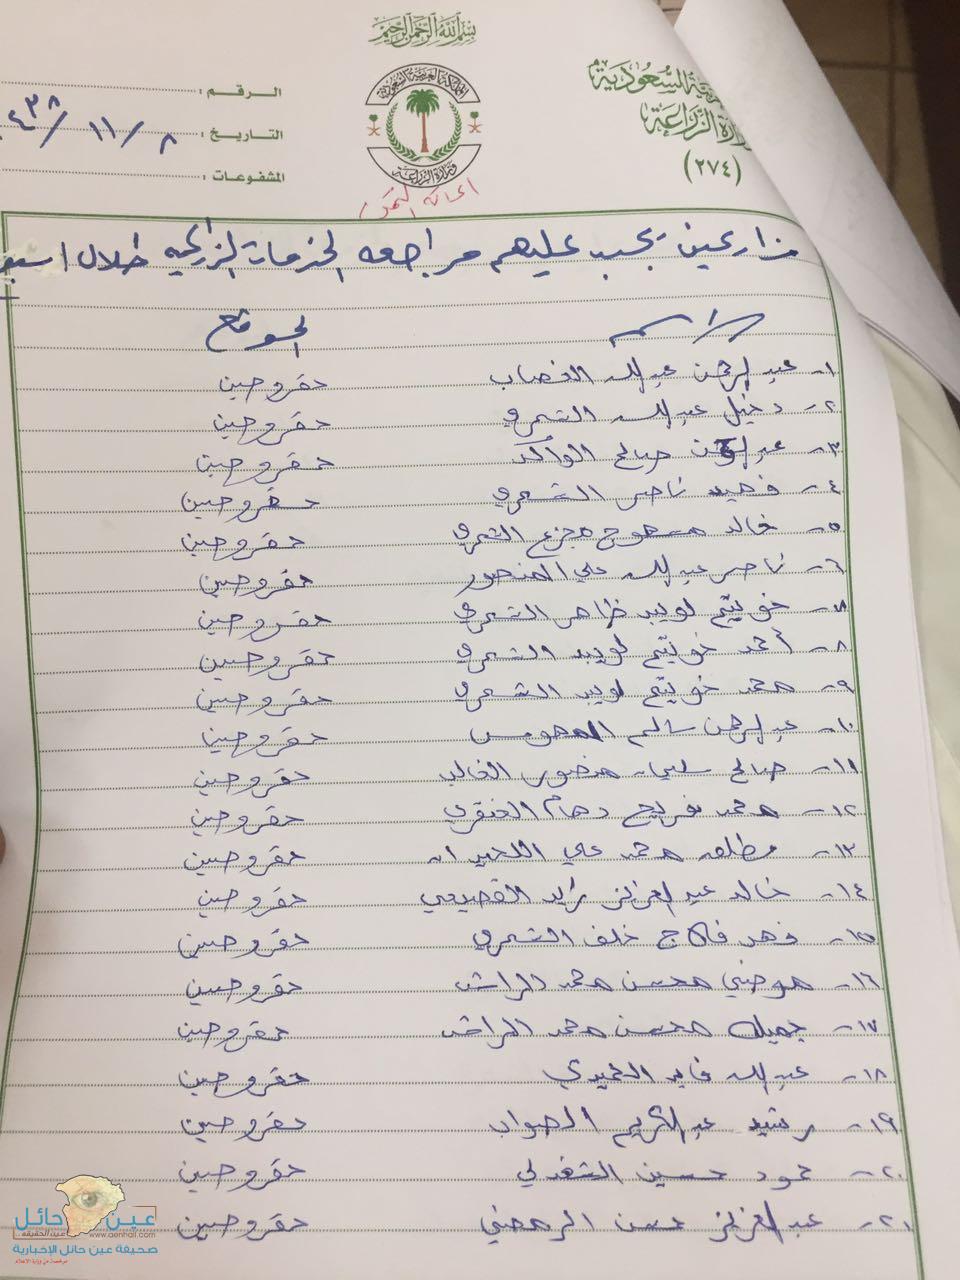 بسم الله الرحمن الرحيم
المملكة العربية السعودية
وزارة الزراعة
(٢٧٤)
الرقم :
التاريخ : ٨ / ١١ / ٤٣٨
المشفوعات :
مزارعين يجب عليهم مراجعه الخدمات الزراعيه خلال اسبو
الاسم الموقع
١- عبدالرحمن عبدالله الغصاب حفر وحين
٢- دخيل عبدالله الشمري حفر وحين
٣- عبدالرحمن صالح الواكد حفر وحين
٤- فهيد ناصر الشمري حفر وحين
٥- خالد مجزع الشمري حفر وحين
٦- ناصر عبدالله علي المنصور حفر وحين
٧- خويتم لويبد ظاهر الشمري حفر وحين
٨- أحمد خويتم لويبد الشمري حفر وحين
٩- محمد خويتم لويبد الشمري حفر وحين
١٠- عبدالرحمن سالم حفر وحين
١١- صالح سليمان منصور الغالب حفر وحين
١٢- محمد فريح دهام حفر وحين
١٣- مطلق محمد علي اللحيدان حفر وحين
١٤- خالد عبدالعزيز زايد القصيمي حفر وحين
١٥- فهد فلاج خلف الشمري حفر وحين
١٦- موضي محسن محمد الراشد حفر وحين
١٧- جميله محسن محمد الراشد حفر وحين
١٨- عبدالله فايد الحميدي حفر وحين
١٩- رشيد عبدالكريم الصواب حفر وحين
٢٠- حمود حسين الشغدلي حفر وحين
٢١- عبدالعزيز محسن حفر وحين
عين حائل
عين الحقيقة
www.aenhail.com
صحيفة عين حائل الإخبارية
مرخصة من وزارة الاعلام